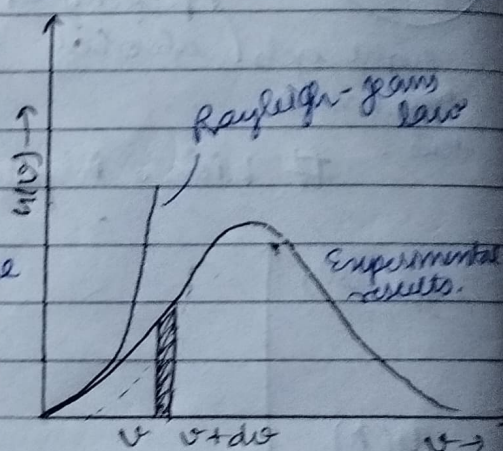 Rayleigh-jeans
law
u(ν) →
Experimental
results.
ν ν+dν ν →